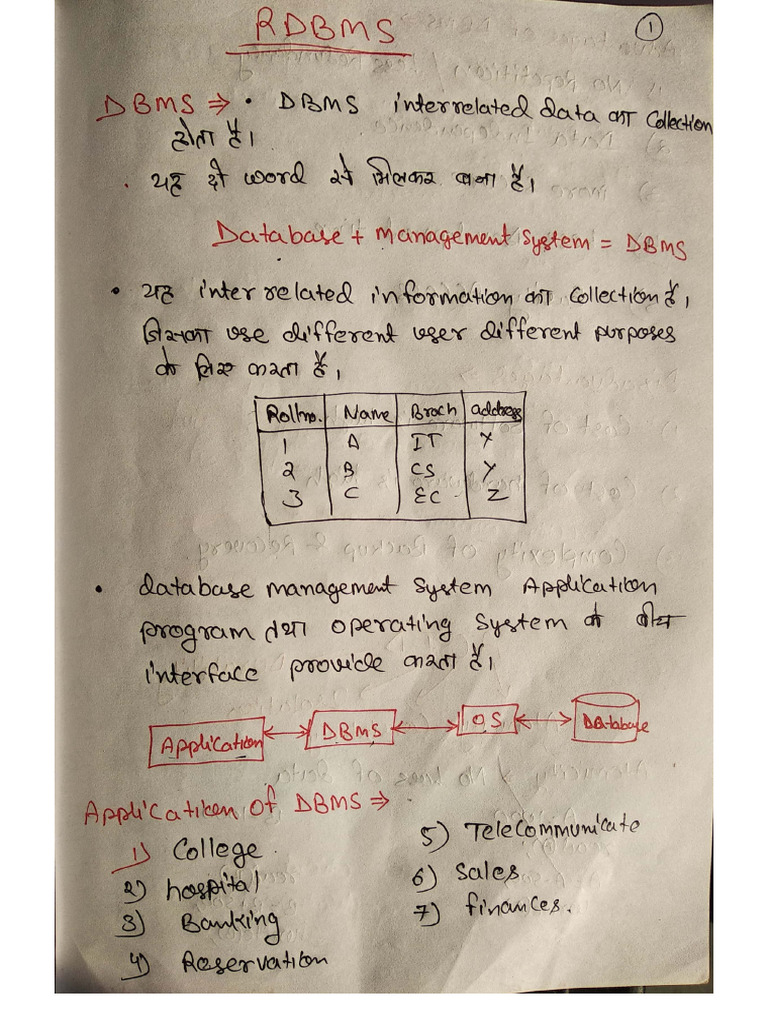 RDBMS
1
DBMS ⇒ • DBMS interrelated data का collection
होता है।
• यह दो word से मिलकर बना है।
Database + management system = DBMS
• यह inter related information का collection है,
जिसका use different user different purposes
के लिए करता है,
Rollno. Name Brach address
1 A IT X
2 B CS Y
3 C EC Z
• database management system Application
program तथा operating system के बीच
interface provide करता है।
Application DBMS OS Database
Application of DBMS ⇒
1) College
2) hospital
3) Banking
4) Reservation
5) Telecommunicate
6) Sales
7) finances.